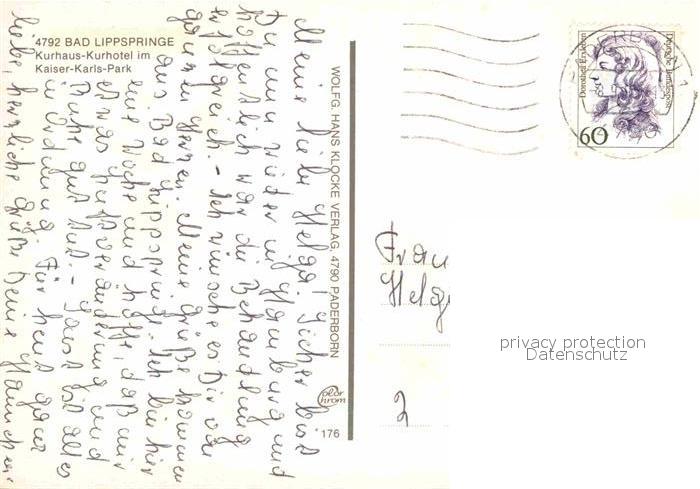 4792 BAD LIPPSPRINGE
Kurhaus-Kurhotel im
Kaiser-Karls-Park
Meine liebe Helga! Sicher bist
Du nun wieder in Hamburg und
hoffentlich war die Behandlung
erfolgreich. - Ich wünsche es Dir von
ganzem Herzen. Meine Grüße kommen
aus Bad Lippspringe. Ich bin hier
eine Woche und hoffe, daß mir
etwas Luftveränderung und
Ruhe gut tut. - Sonst ist alles
in Ordnung. Für heute ganz
liebe, herzliche Grüße Deine
WOLFG. HANS KLOCKE VERLAG, 4790 PADERBORN
color
chrom
176
Dorothea Erxleben
Deutsche Bundespost
60
Frau
Helg
2
privacy protection
Datenschutz